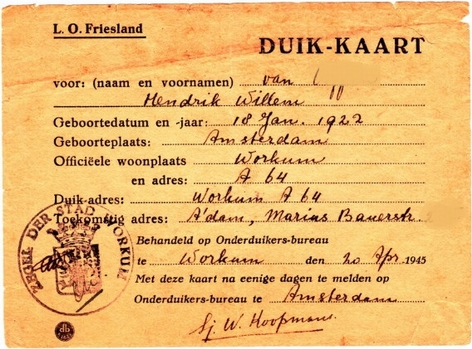 L. O. Friesland
DUIK-KAART
voor: (naam en voornamen) van
Hendrik Willem
Geboortedatum en -jaar: 18 Jan. 1922
Geboorteplaats: Amsterdam
Officiëele woonplaats Workum
en adres: A 64
Duik-adres: Workum A 64
Toekomstig adres: A'dam, Marius Bauerstr.
ZEGEL DER STAD WORKUM
Behandeld op Onderduikers-bureau
te Workum den 20 Apr. 1945
Met deze kaart na eenige dagen te melden op
Onderduikers-bureau te Amsterdam
Sj. W. Koopmans
db